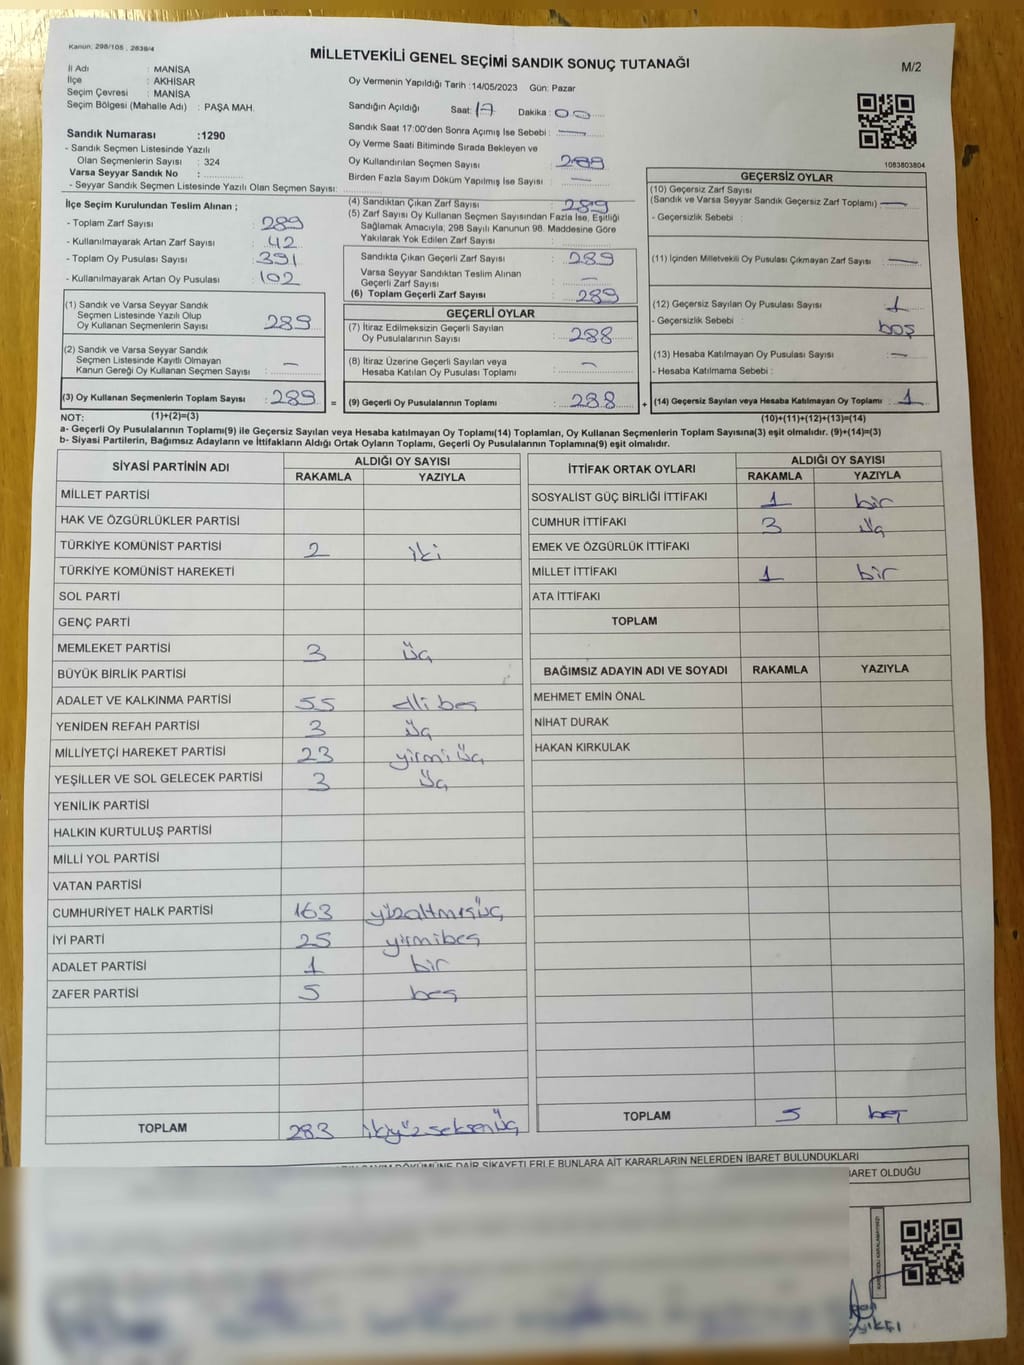 Kanun: 298/105 , 2839/4
MİLLETVEKİLİ GENEL SEÇİMİ SANDIK SONUÇ TUTANAĞI
M/2
İl Adı : MANİSA
İlçe : AKHİSAR
Seçim Çevresi : MANİSA
Seçim Bölgesi (Mahalle Adı) : PAŞA MAH.
Oy Vermenin Yapıldığı Tarih :14/05/2023 Gün: Pazar
Sandığın Açıldığı Saat: 17 Dakika : 00
Sandık Saat 17:00'den Sonra Açımış İse Sebebi : —
Oy Verme Saati Bitiminde Sırada Bekleyen ve
Oy Kullandırılan Seçmen Sayısı : 288
Birden Fazla Sayım Döküm Yapılmış İse Sayısı : —
1083803804
Sandık Numarası :1290
- Sandık Seçmen Listesinde Yazılı
Olan Seçmenlerin Sayısı : 324
Varsa Seyyar Sandık No :
- Seyyar Sandık Seçmen Listesinde Yazılı Olan Seçmen Sayısı:
İlçe Seçim Kurulundan Teslim Alınan ;
- Toplam Zarf Sayısı : 289
- Kullanılmayarak Artan Zarf Sayısı : 42
- Toplam Oy Pusulası Sayısı : 391
- Kullanılmayarak Artan Oy Pusulası : 102
(1) Sandık ve Varsa Seyyar Sandık
Seçmen Listesinde Yazılı Olup
Oy Kullanan Seçmenlerin Sayısı : 289
(2) Sandık ve Varsa Seyyar Sandık
Seçmen Listesinde Kayıtlı Olmayan
Kanun Gereği Oy Kullanan Seçmen Sayısı : —
(3) Oy Kullanan Seçmenlerin Toplam Sayısı : 289 =
(4) Sandıktan Çıkan Zarf Sayısı : 289
(5) Zarf Sayısı Oy Kullanan Seçmen Sayısından Fazla İse, Eşitliği
Sağlamak Amacıyla; 298 Sayılı Kanunun 98. Maddesine Göre
Yakılarak Yok Edilen Zarf Sayısı :
Sandıkta Çıkan Geçerli Zarf Sayısı : 289
Varsa Seyyar Sandıktan Teslim Alınan
Geçerli Zarf Sayısı : —
(6) Toplam Geçerli Zarf Sayısı : 289
GEÇERLİ OYLAR
(7) İtiraz Edilmeksizin Geçerli Sayılan
Oy Pusulalarının Sayısı : 288
(8) İtiraz Üzerine Geçerli Sayılan veya
Hesaba Katılan Oy Pusulası Toplamı : —
(9) Geçerli Oy Pusulalarının Toplamı : 288 +
GEÇERSİZ OYLAR
(10) Geçersiz Zarf Sayısı
(Sandık ve Varsa Seyyar Sandık Geçersiz Zarf Toplamı) : —
- Geçersizlik Sebebi :
(11) İçinden Milletvekili Oy Pusulası Çıkmayan Zarf Sayısı : —
(12) Geçersiz Sayılan Oy Pusulası Sayısı : 1
- Geçersizlik Sebebi : boş
(13) Hesaba Katılmayan Oy Pusulası Sayısı : —
- Hesaba Katılmama Sebebi :
(14) Geçersiz Sayılan veya Hesaba Katılmayan Oy Toplamı : 1
NOT: (1)+(2)=(3)
(10)+(11)+(12)+(13)=(14)
a- Geçerli Oy Pusulalarının Toplamı(9) ile Geçersiz Sayılan veya Hesaba katılmayan Oy Toplamı(14) Toplamları, Oy Kullanan Seçmenlerin Toplam Sayısına(3) eşit olmalıdır. (9)+(14)=(3)
b- Siyasi Partilerin, Bağımsız Adayların ve İttifakların Aldığı Ortak Oyların Toplamı, Geçerli Oy Pusulalarının Toplamına(9) eşit olmalıdır.
SİYASİ PARTİNİN ADI ALDIĞI OY SAYISI
RAKAMLA YAZIYLA
MİLLET PARTİSİ
HAK VE ÖZGÜRLÜKLER PARTİSİ
TÜRKİYE KOMÜNİST PARTİSİ 2 iki
TÜRKİYE KOMÜNİST HAREKETİ
SOL PARTİ
GENÇ PARTİ
MEMLEKET PARTİSİ 3 üç
BÜYÜK BİRLİK PARTİSİ
ADALET VE KALKINMA PARTİSİ 55 elli beş
YENİDEN REFAH PARTİSİ 3 üç
MİLLİYETÇİ HAREKET PARTİSİ 23 yirmi üç
YEŞİLLER VE SOL GELECEK PARTİSİ 3 üç
YENİLİK PARTİSİ
HALKIN KURTULUŞ PARTİSİ
MİLLİ YOL PARTİSİ
VATAN PARTİSİ
CUMHURİYET HALK PARTİSİ 163 yüzaltmışüç
İYİ PARTİ 25 yirmibeş
ADALET PARTİSİ 1 bir
ZAFER PARTİSİ 5 beş
TOPLAM 283 ikiyüzseksenüç
İTTİFAK ORTAK OYLARI ALDIĞI OY SAYISI
RAKAMLA YAZIYLA
SOSYALİST GÜÇ BİRLİĞİ İTTİFAKI 1 bir
CUMHUR İTTİFAKI 3 üç
EMEK VE ÖZGÜRLÜK İTTİFAKI
MİLLET İTTİFAKI 1 bir
ATA İTTİFAKI
TOPLAM
BAĞIMSIZ ADAYIN ADI VE SOYADI RAKAMLA YAZIYLA
MEHMET EMİN ÖNAL
NİHAT DURAK
HAKAN KIRKULAK
TOPLAM 5 beş
DÖKÜMÜNE DAİR ŞİKAYETLERLE BUNLARA AİT KARARLARIN NELERDEN İBARET BULUNDUKLARI
İBARET OLDUĞU